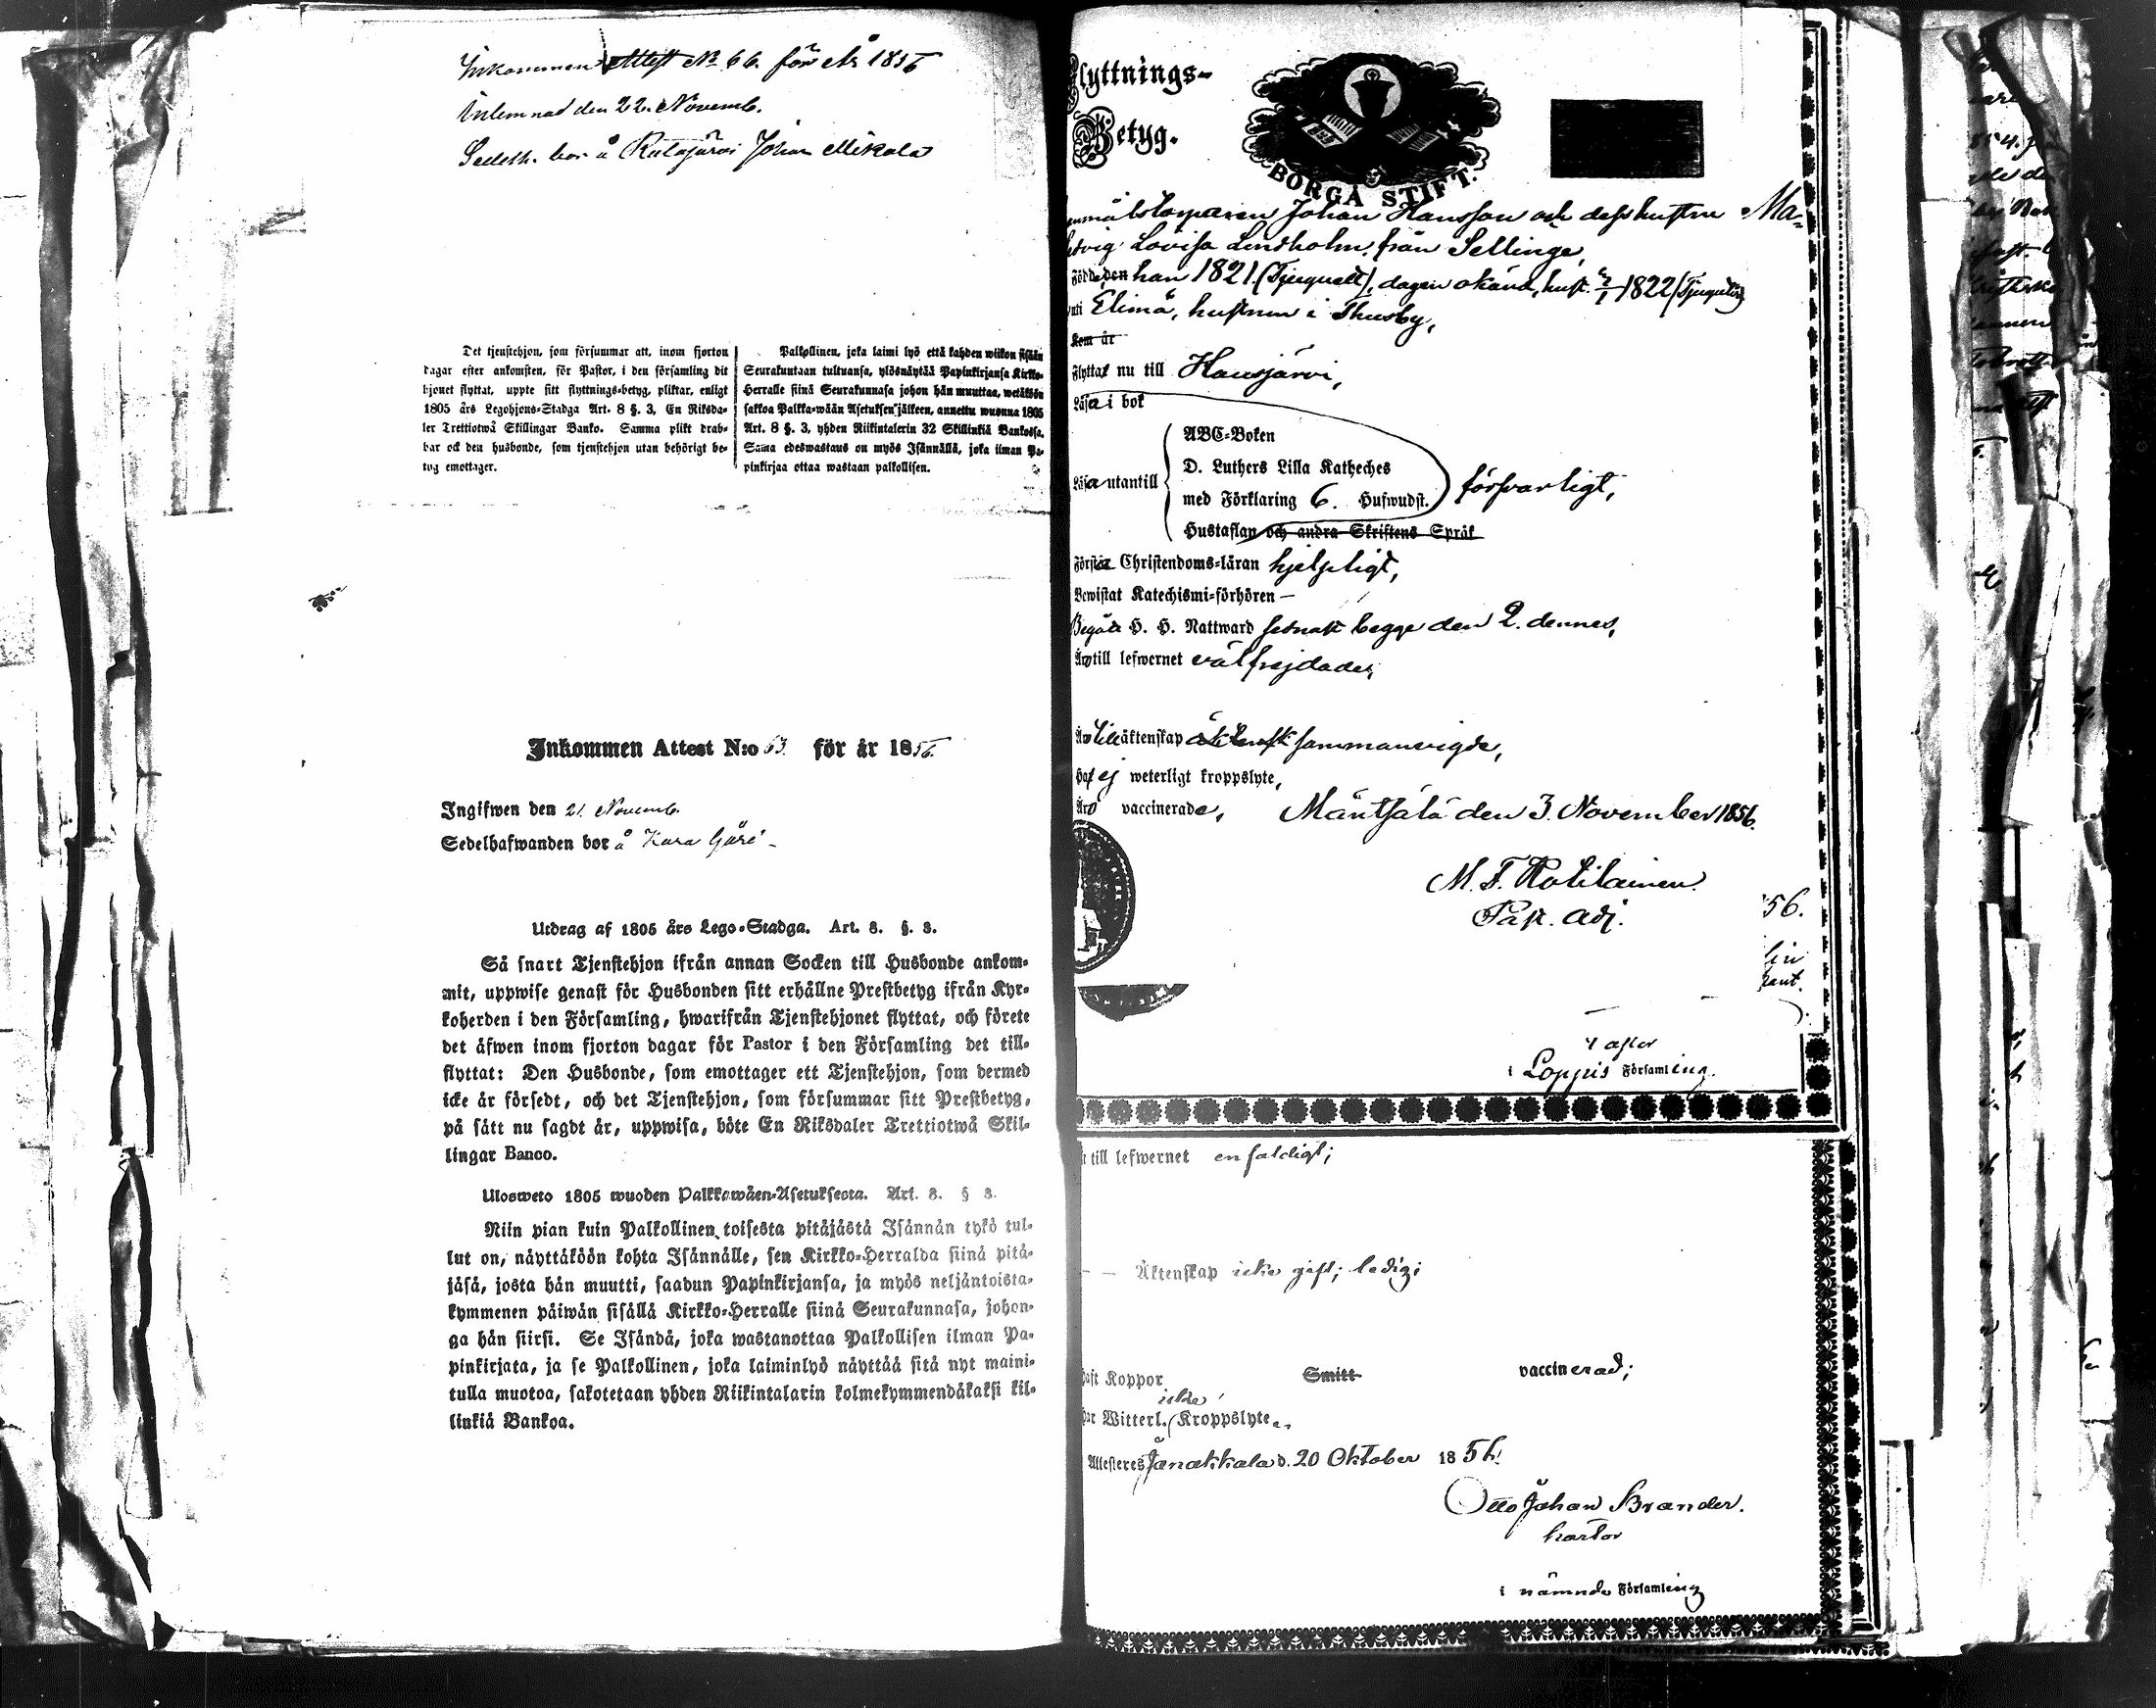 Inkommen Attest No 66 för År 1856
Inlemnad den 22. Novemb.
Sedelh. bor å Rutajärvi Johan Mikola
Det tjenstehjon, som försummar att, inom fjorton
dagar efter ankomsten, för Pastor, i den församling dit
hjonet flyttat, uppte sitt flyttnings-betyg, pliktar, enligt
1805 års Legohjons-Stadga Art. 8 §. 3, En Riksda-
ler Trettiotwå Skillingar Banko. Samma plikt drab-
bar ock den husbonde, som tjenstehjon utan behörigt be-
tyg emottager.
Palkollinen, joka laimi lyö että kahden wiikon sisään
Seurakuntaan tultuansa, ylösnäytää Papinkirjansa Kirkko-
Herralle siinä Seurakunnasa johon hän muuttaa, wetäköön
sakkoa Palkka-wään Asetuksen jälkeen, annettu wuonna 1805
Art. 8 §. 3, yhden Riikintalerin 32 Skillinkiä Bankossa.
Sama edeswastaus on myös Isännällä, joka ilman Pa-
pinkirjaa ottaa wastaan palkollisen.
Inkommen Attest N:o 63. för år 1856.
Ingifwen den 21. Novemb.
Sedelhafwanden bor å Kara Gård
Utdrag af 1805 års Lego-Stadga. Art. 8. §. 3.
Så snart Tjenstehjon ifrån annan Socken till Husbonde ankom-
mit, uppwise genast för Husbonden sitt erhållne Prestbetyg ifrån Kyr-
koherden i den Församling, hwarifrån Tjenstehjonet flyttat, och förete
det äfwen inom fjorton dagar för Pastor i den Församling det till-
flyttat: Den Husbonde, som emottager ett Tjenstehjon, som dermed
icke är försedt, och det Tjenstehjon, som försummar sitt Prestbetyg,
på sätt nu sagdt är, uppwisa, böte En Riksdaler Trettiotwå Skil-
lingar Banco.
Ulosweto 1805 wuoden Palkkawäen-Asetuksesta. Art. 8. § 3.
Niin pian kuin Palkollinen toisesta pitäjästä Isännän tykö tul-
lut on, näyttäköön kohta Isännälle, sen Kirkko-Herralda siinä pitä-
jäsä, josta hän muutti, saadun Papinkirjansa, ja myös neljäntoista-
kymmenen päiwän sisällä Kirkko-Herralle siinä Seurakunnasa, johon-
ga hän siirsi. Se Isändä, joka wastanottaa Palkollisen ilman Pa-
pinkirjata, ja se Palkollinen, joka laiminlyö näyttää sitä nyt maini-
tulla muotoa, sakotetaan yhden Riikintalarin kolmekymmendäkaksi kil-
linkiä Bankoa.
lyttnings-
Betyg.
BORGÅ STIFT.
Johan Hansson och dess hustru Ma-
Lovisa Lindholm, från Sellinge,
Född den han 1821. dagen okänd, hust. 1822
Elimä, hustrun i Thusby,
Kom år
Flyttat nu till Hausjärvi,
Läsa i bok
ABC-Boken
D. Luthers Lilla Katheches
Läsa utantill
med Förklaring 6. Hufwudst. försvarligt,
Hustaflan och andra Skriftens Språk
Förstår Christendoms-läran hjelpligt,
Bewistat Katechismi-förhören —
Begått H. H. Nattward sednast begge den 2. dennes,
Äro till lefwernet välfrejdade,
Äro till äktenskap sammanvigde,
Ha ej weterligt kroppslyte,
Äro vaccinerade, Mäntsälä den 3. November 1856.
M. F. Rotilainen.
Past. Adj.
56.
lin
Pastor
i Loppis Församling.
till lefwernet enfaldigt;
— — Äktenskap icke gift; ledig;
haft Koppor Smitt vaccinerad;
icke
har Witterl. Kroppslyte.
Attesteres Janakkala d. 20 Oktober 1856.
Otto Johan Brander.
i nämnde Församling